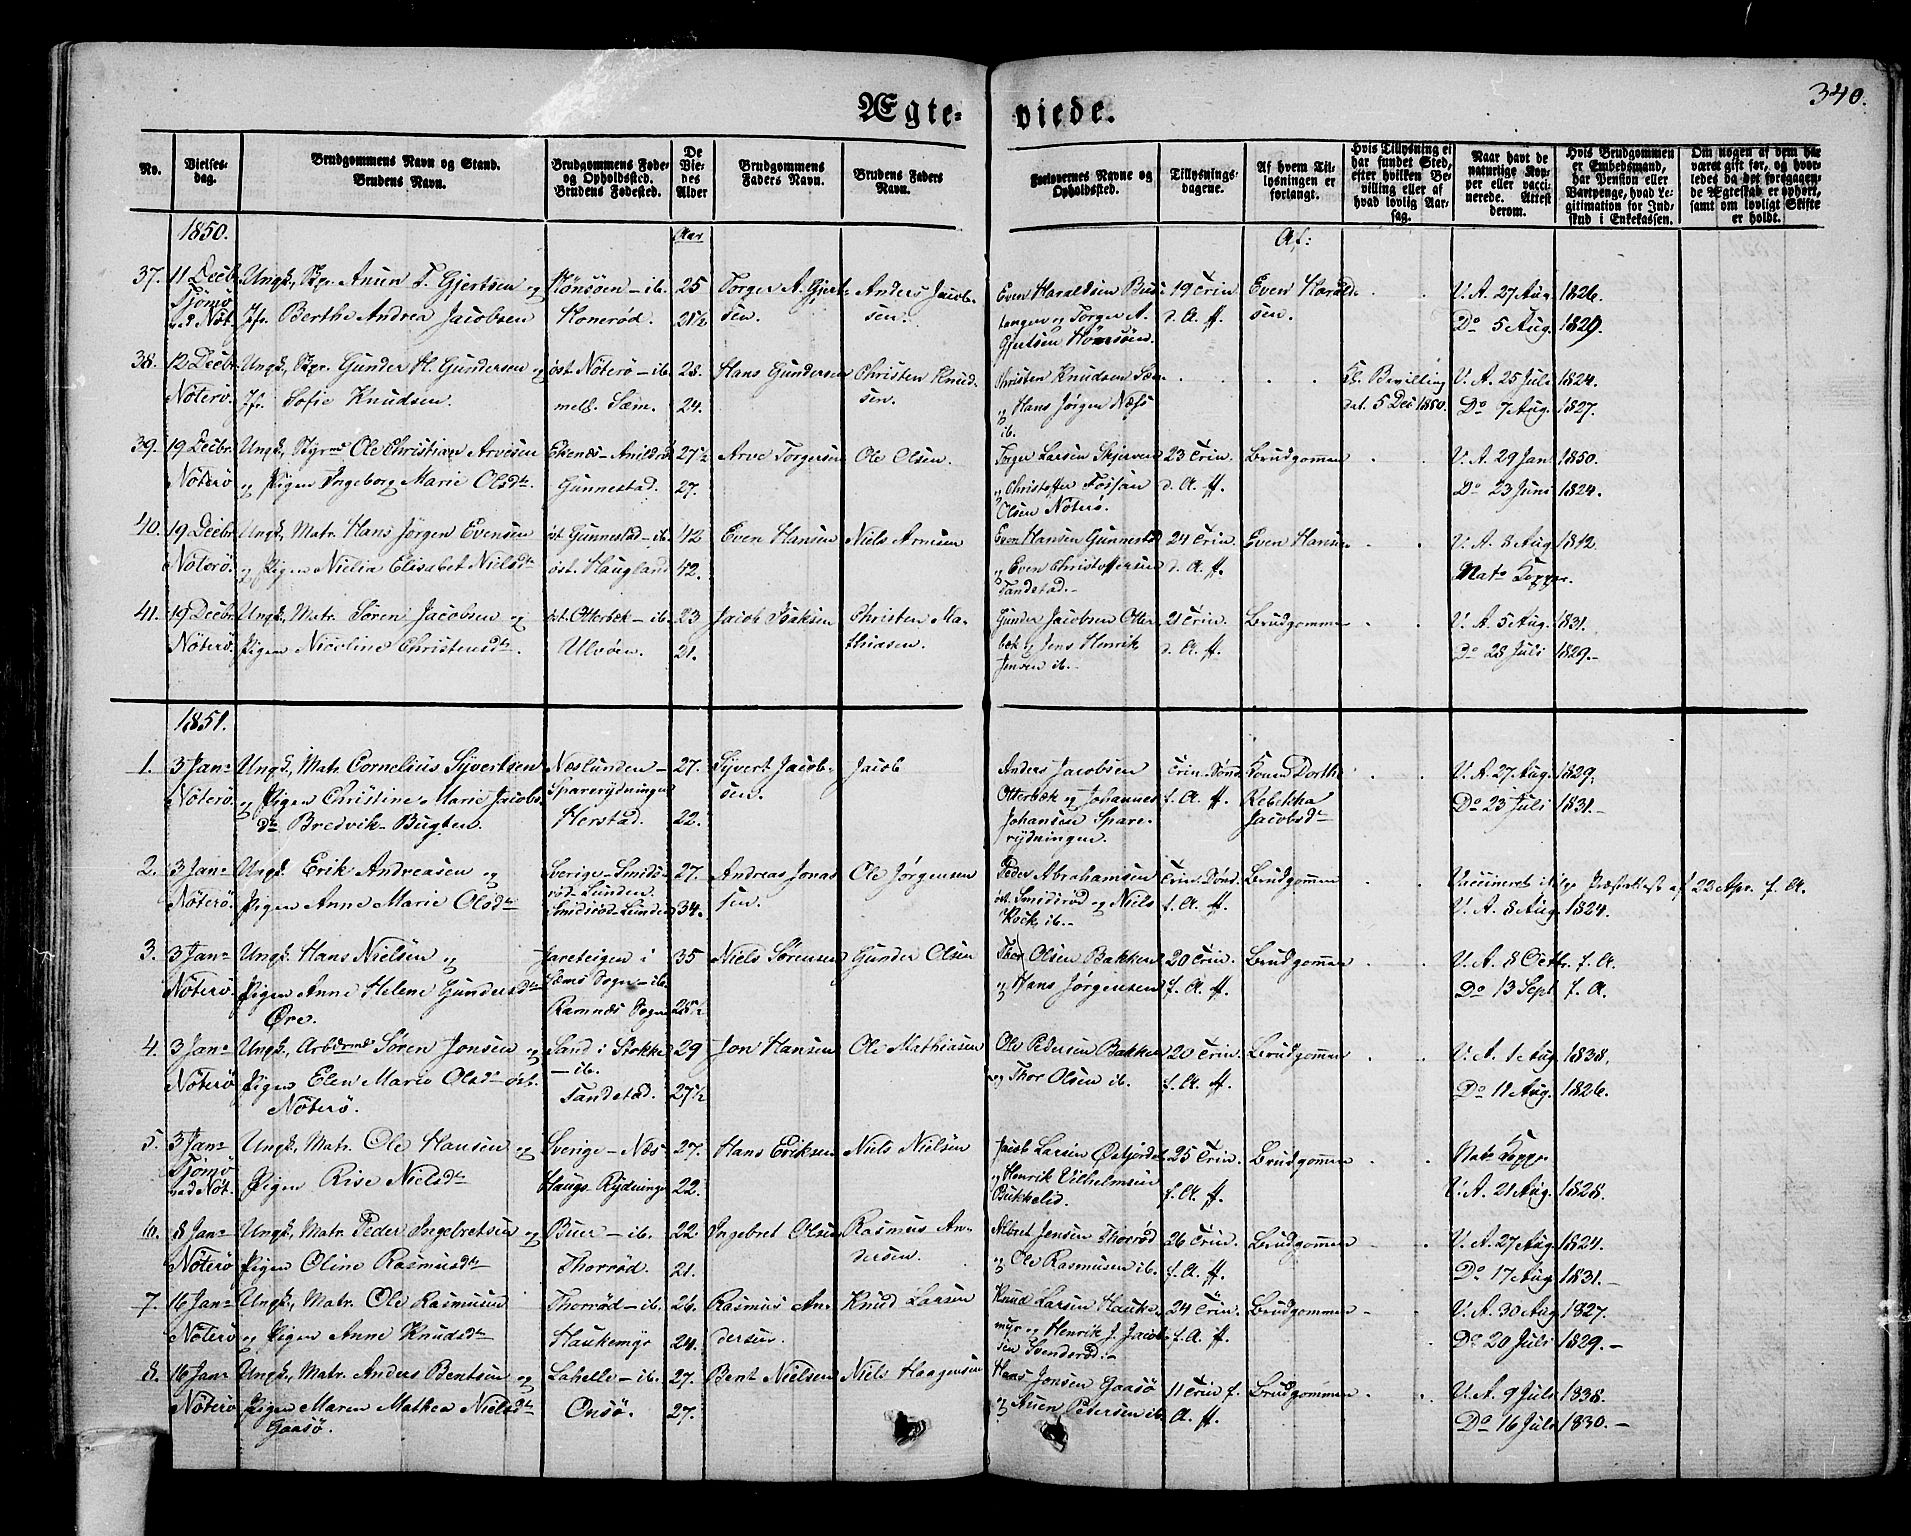 340.
Ægteviede.
No.
Vielsesdag.
Brudgommens Navn og Stand.
Brudens Navn.
Brudgommens Føde- og Opholdssted.
Brudens Fødested.
De Viedes Alder
Brudgommens Faders Navn.
Brudens Faders Navn.
Forlovernes Navne og Opholdssted.
Tillysningsdagene.
Af hvem Tillysningen er forlangt.
Hvis Tillysning ei har fundet Sted, efter hvilken Bevilling eller af hvad lovlig Aarsag.
Naar havt de naturlige Kopper eller vaccinerede. Attest derom.
Hvis Brudgommen er Embedsmand, har Pension eller Vartpenge, hvad Legitimation for Indskud i Enkekassen.
Om nogen af dem har været gift før, og hvorledes da det foregaaende Ægteskab er ophørt, samt om lovligt Skifte er holdt.
1850. Aar Af:
37. 11 Decbr Ungk., Skpr. Anun T. Gjertsen og Hönsöen – ib. 25 Torger A. Gjert- Anders Jacob- Even Haraldsen 19 Trin Even Harald- V. A. 27 Aug. 1826.
Tjömö Jfr. Berthe Andrea Jacobsen Honerød. 21½ sen. sen. og Torger A. d. A. ff. sen. Do 5 Aug. 1829.
ved Nöt. Gjertsen Hönsöen.
38. 12 Decbr Ungk., Skpr. Gunder H. Gundersen og öst. Nöterö – ib. 28. Hans Gundersen Christen Knud- Christen Knudsen Sæm Bevilling V. A. 25 Juli 1824.
Nöterö. Jfr. Sofie Knudsen. mell. Sæm. 24. sen. og Hans Jørgen Næss dat. 5 Dec 1850. Do 7 Aug. 1827.
ib.
39. 19 Decbr Ungk., Styrmd Ole Christian Arvesen Ekenæs – 27½ Arve Torgersen Ole Olsen. Torger Larsen Skjerven 23 Trin. Brudgommen V. A. 29 Jan 1850.
Nöterö og Pigen Ingeborg Marie Olsdtr Gunnestad. 27. og Christoffer d. A. ff. Do 23 Juni 1824.
Olsen Nöterö.
40. 19 Decbr Ungk., Matr. Hans Jörgen Evensen öst. Gunnestad – ib 42 Even Hansen Niels Arnesen Even Hansen Gunnestad 24 Trin. Even Hansen V. A. 8 Aug 1812.
Nöterö. og Pigen Nielia Elisabet Nielsdtr öst. Haugland 42. og Even Christoffersen d. A. ff. Nat. Kopper.
Tandestad.
41. 19 Decbr Ungk., Matr. Sören Jacobsen og öst. Otterbek – ib. 23 Jacob Isaksen Christen Ma- Gunder Jacobsen Otter- 21 Trin. Brudgommen V. A. 5 Aug. 1831.
Nöterö. Pigen Nicoline Christensdtr. Ulvöen. 21. thiasen. bek og Jens Henrik d. A. ff. Do 28 Juli 1829.–
Jensen ib.–
1851.
1. 3 Janr Ungk., Matr. Cornelius Sijvertsen Næslunden – 27. Sijvert Jacob- Jacob Anders Jacobsen Trin. Sönd. Konen Dorthe V. A. 27 Aug. 1829.
Nöterö. og Pigen Christine Marie Jacobs- Sparerydningen sen. Otterbæk og Johannes f. A. ff. Rebekka Do 23 Juli 1831.–
dtr Bredvik-Bugten. Herstad. 22. Johansen Spare- Jacobsdtr
rydningen.
2. 3 Janr Ungk. Erik Andreasen og Sverige – Smids- 27. Andreas Jonas- Ole Jørgensen Peder Abrahamsen Trin. Sönd. Brudgommen Vaccineret ifölge Præsteattest af 22 Apr. f. A.
Nöterö. Pigen Anne Marie Olsdtr röd-Lunden. Smidsröd-Lunden 34. sen. öst. Smidsröd og Niels f. A. ff. V. A. 8 Aug. 1824.
Kock ib.–
3. 3 Janr Ungk. Hans Nielsen og Jareteigen i 35 Niels Sörensen Gunder Olsen Thor Olsen Bakken 20 Trin. Brudgommen V. A. 8 Octbr. f. A.
Nöterö. Pigen Anne Helene Gundersdtr Sæms Sogn – ib. og Hans Jørgensen f. A. ff. Do 13 Sept f. A.
Øre. Ramnæs Sogn 28½
4. 3 Janr Ungk., Arbdsmd Sören Jonsen og Sand i Stokke 29 Jon Hansen Ole Mathiasen Ole Pedersen Bakken 20 Trin. Brudgommen V. A. 1 Aug 1838.
Nöterö Pigen Elen Marie Olsd – öst. – ib. og Thor Olsen ib. f. A. ff. Do 11 Aug. 1826.
Nöterö. Tandestad. 27½
5. 3 Janr Ungk., Matr. Ole Hansen og Sverige – Næs 27. Hans Eriksen Niels Nielsen Jacob Larsen Østjordet 25 Trin. Brudgommen Nat. Kopper
Tjömö Pigen Rise Nielsdtr Haugs-Rydningen 22. og Henrik Vilhelmsen f. A. ff. V. A. 21 Aug. 1828.
ved Nöt. Bukkelid.
6. 8 Janr Ungk., Matr. Peder Ingebretsen og Buer – ib. 22. Ingebret Olsen Rasmus An- Albret Jensen Thorröd 26 Trin. Brudgommen V. A. 27 Aug 1824.
Nöterö Pigen Oline Rasmusdtr Thorröd. 21. dersen. og Ole Rasmussen ib. f. A. ff. Do 17 Aug 1831.–
7. 16 Janr Ungk., Matr. Ole Rasmusen Thorröd – ib. 26. Rasmus An- Knud Larsen Knud Larsen Hauke- 24 Trin. Brudgommen V. A. 30 Aug 1827.
Nöterö og Pigen Anne Knudsdtr Haukemyr 24. dersen. myr og Henrik J. Jacob- f. A. ff. Do 20 Juli 1829.–
sen Svenderöd.–
8. 16 Janr Ungk., Matr. Anders Bentsen og Lahelle – ib. 27. Bent Nielsen Niels Haagensen Haas Jonsen Gaasö 11 Trin f. Brudgommen V. A. 9 Juli 1838.
Nöterö Pigen Maren Mathea Nielsdtr Onsö. 27. og Anen Petersen ib A. ff. Do 16 Juli 1830.–
Gaasö.